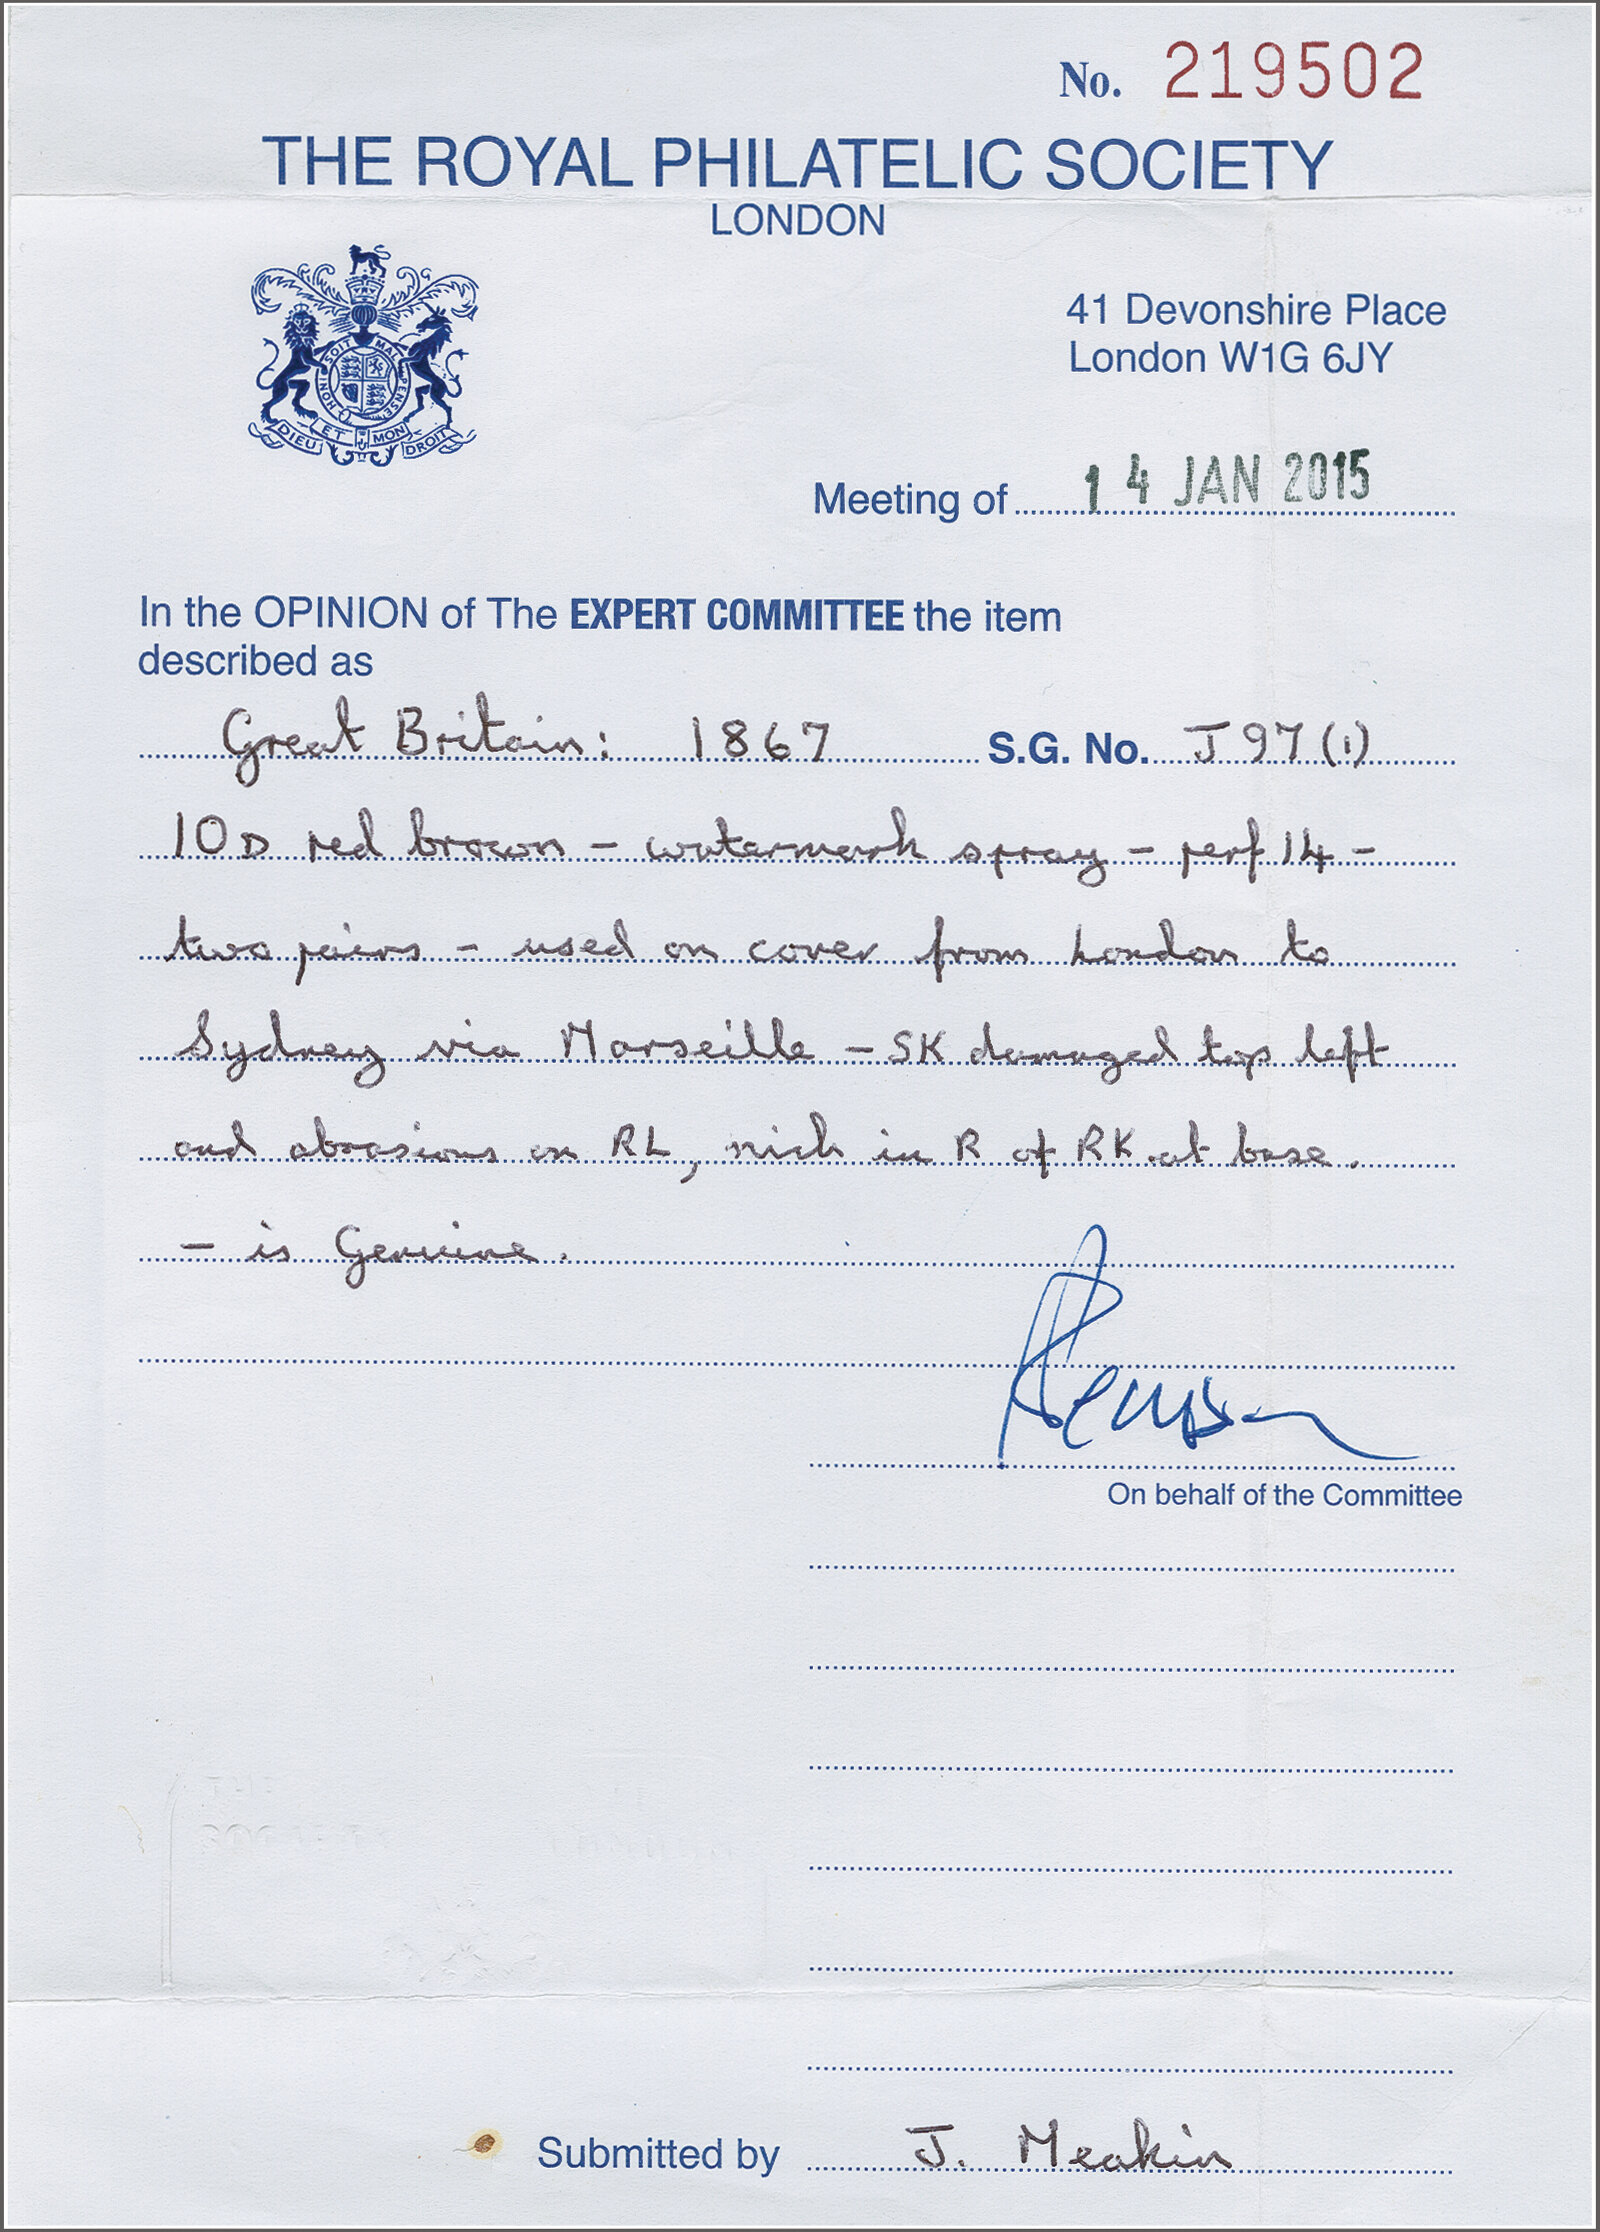 No. 219502
THE ROYAL PHILATELIC SOCIETY
LONDON
HONI SOIT MAL PENSE
DIEU ET MON DROIT
41 Devonshire Place
London W1G 6JY
Meeting of 14 JAN 2015
In the OPINION of The EXPERT COMMITTEE the item
described as
Great Britain: 1867 S.G. No. J97(1)
10D red brown - watermark spray - perf 14 -
two pairs - used on cover from London to
Sydney via Marseille - SK damaged top left
and abrasions on RL, nick in R of RK at base.
- is Genuine.
On behalf of the Committee
Submitted by J. Meakin